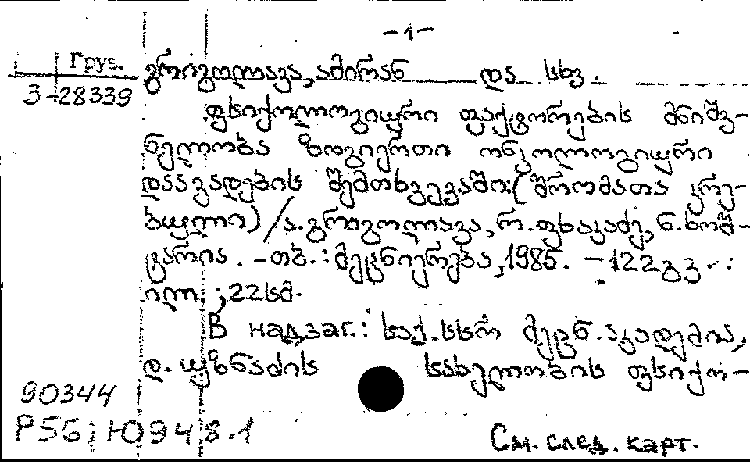 -1-
Груз. გრიგოლავა, ამირან და სხვ.
3-28339
ფსიქოლოგიური ფაქტორების მნიშვ-
ნელობა ზოგიერთი ონკოლოგიური
დაავადების შემთხვევაში: (შრომათა კრე-
ბული) / ა. გრიგოლავა, რ. ფხაკაძე, ნ. ბოშ-
ტარია. - თბ.: მეცნიერება, 1985. - 122 გვ.:
ილ.; 22 სმ.
В надзаг.: საქ. სსრ მეცნ. აკადემია,
დ. უზნაძის სახელობის ფსიქო-
90344
Р56; Ю94 8.1
См. след. карт.